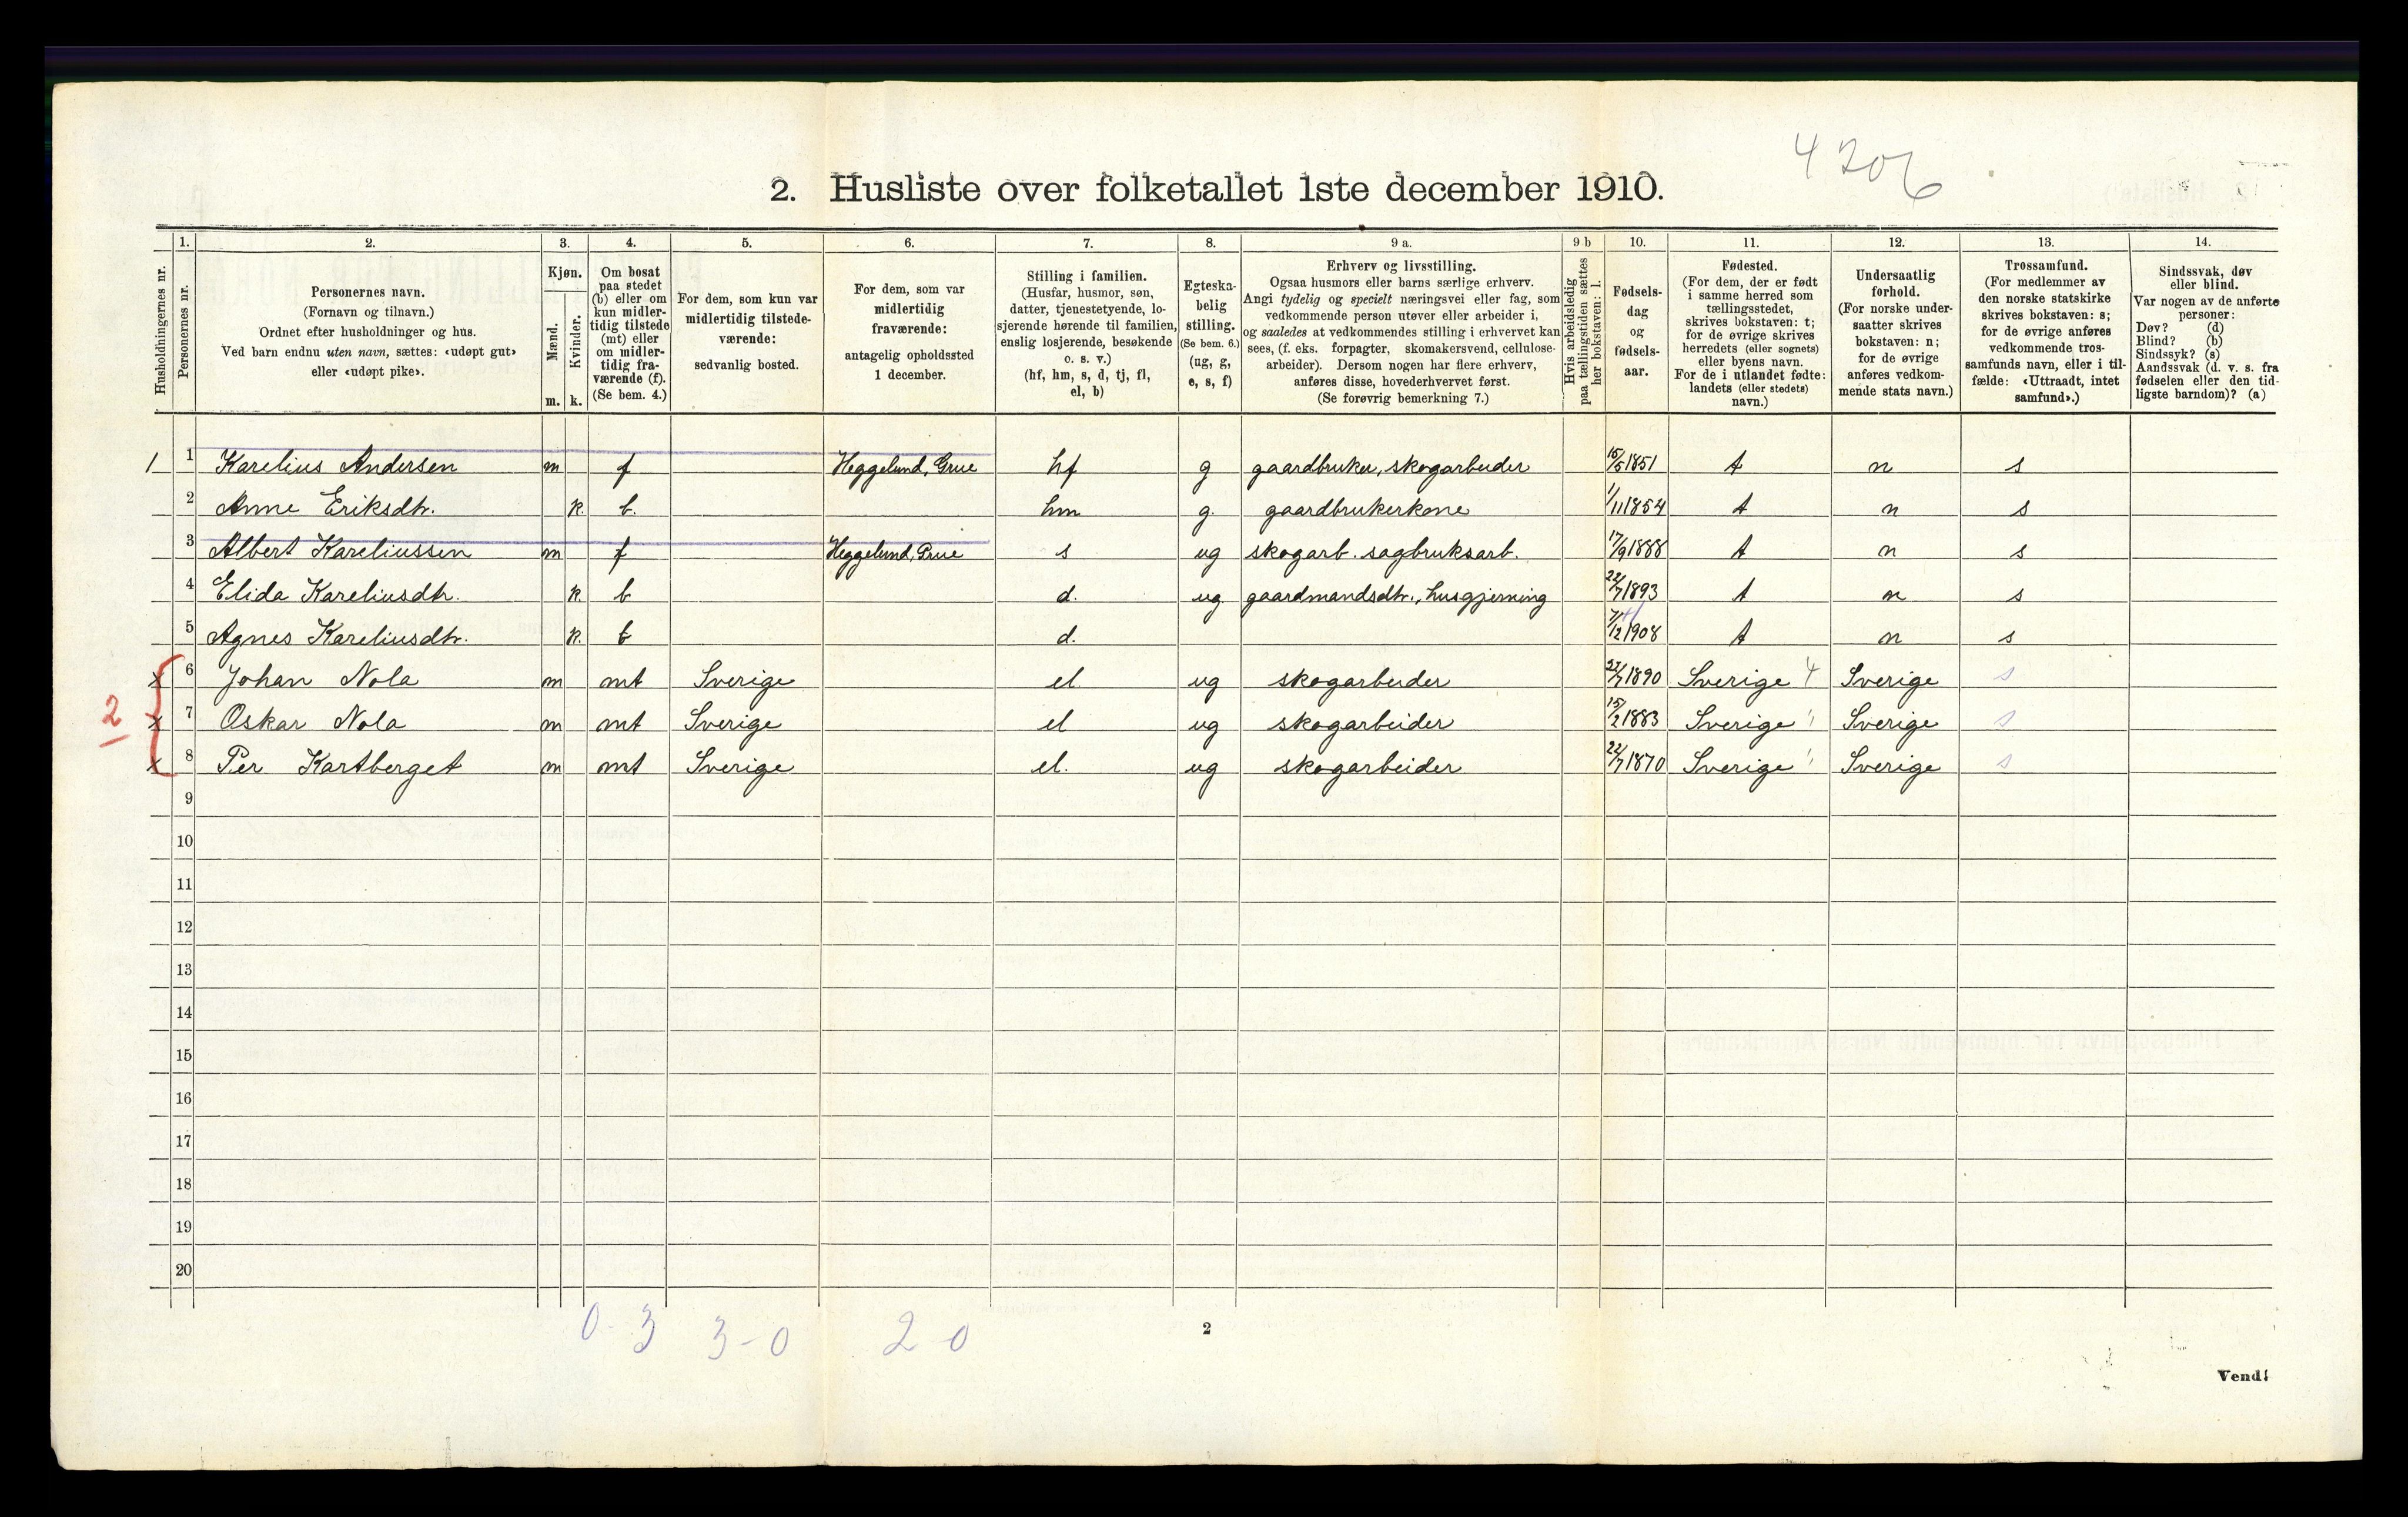 4206
2. Husliste over folketallet 1ste december 1910.
Husholdningernes nr.
1. Personernes nr.
2. Personernes navn. (Fornavn og tilnavn.) Ordnet efter husholdninger og hus. Ved barn endnu uten navn, sættes: «udøpt gut» eller «udøpt pike».
3. Kjøn. Mænd. m. Kvinder. k.
4. Om bosat paa stedet (b) eller om kun midlertidig tilstede (mt) eller om midlertidig fraværende (f). (Se bem. 4.)
5. For dem, som kun var midlertidig tilstedeværende: sedvanlig bosted.
6. For dem, som var midlertidig fraværende: antagelig opholdssted 1 december.
7. Stilling i familien. (Husfar, husmor, søn, datter, tjenestetyende, losjerende hørende til familien, enslig losjerende, besøkende o. s. v.) (hf, hm, s, d, tj, fl, el, b)
8. Egteskabelig stilling. (Se bem. 6.) (ug, g, e, s, f)
9 a. Erhverv og livsstilling. Ogsaa husmors eller barns særlige erhverv. Angi tydelig og specielt næringsvei eller fag, som vedkommende person utøver eller arbeider i, og saaledes at vedkommendes stilling i erhvervet kan sees, (f. eks. forpagter, skomakersvend, cellulosearbeider). Dersom nogen har flere erhverv, anføres disse, hovederhvervet først. (Se forøvrig bemerkning 7.)
9 b Hvis arbeidsledig paa tællingstiden sættes her bokstaven: l.
10. Fødselsdag og fødselsaar.
11. Fødested. (For dem, der er født i samme herred som tællingsstedet, skrives bokstaven: t; for de øvrige skrives herredets (eller sognets) eller byens navn. For de i utlandet fødte: landets (eller stedets) navn.)
12. Undersaatlig forhold. (For norske undersaatter skrives bokstaven: n; for de øvrige anføres vedkommende stats navn.)
13. Trossamfund. (For medlemmer av den norske statskirke skrives bokstaven: s; for de øvrige anføres vedkommende trossamfunds navn, eller i tilfælde: «Uttraadt, intet samfund».)
14. Sindssvak, døv eller blind. Var nogen av de anførte personer: Døv? (d) Blind? (b) Sindssyk? (s) Aandssvak (d. v. s. fra fødselen eller den tidligste barndom)? (a)
1 1 Karelius Andersen m f Heggelund, Grue hf g gaardbruker, skogarbeider 15/5 1851 t n s
2 Anne Eriksdtr. k. b. hm g. gaardbrukerkone 1/11 1854 t n s
3 Albert Kareliussen m f Heggelund, Grue s ug skogarb. sagbruksarb. 17/9 1888 t n s
4 Elida Kareliusdtr. k. b d. ug. gaardmandsdtr., husgjerning 22/7 1893 t n s
5 Agnes Kareliusdtr. k. b d. 7/12 1908 t n s
x 6 Johan Nola m mt Sverige el. ug skogarbeider 27/7 1890 Sverige 4 Sverige s
2 x 7 Oskar Nola m mt Sverige el ug skogarbeider 15/2 1883 Sverige " Sverige s
x 8 Per Kartberget m mt Sverige el. ug skogarbeider 22/7 1870 Sverige " Sverige s
9
10
11
12
13
14
15
16
17
18
19
20
0-3 3-0 2 0
2
Vend!